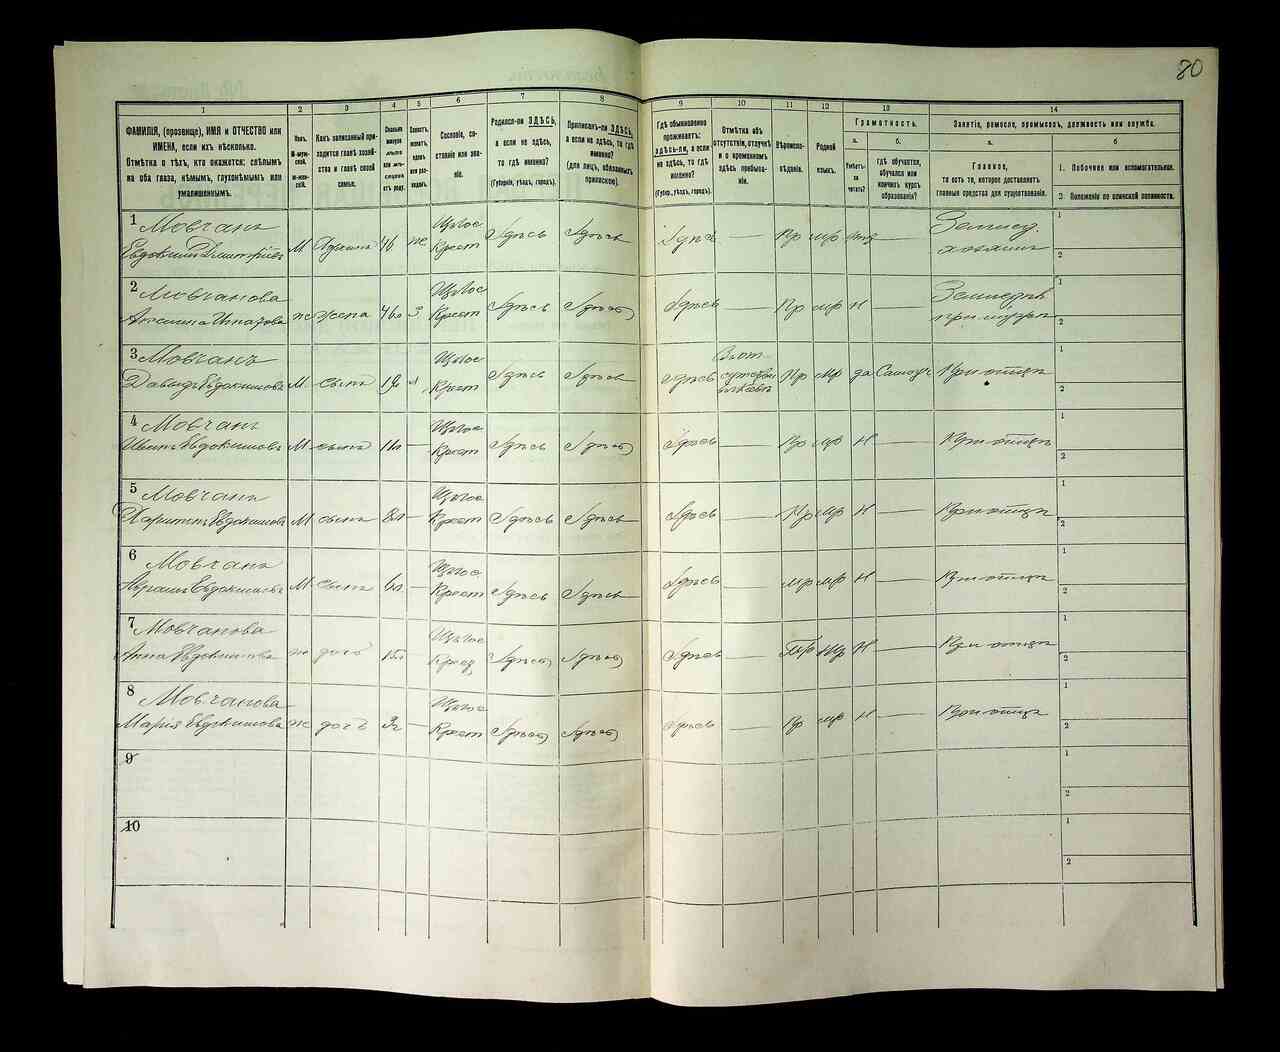 80
1 2 3 4 5 6 7 8 9 10 11 12 13 14
ФАМИЛІЯ, (прозвище), ИМЯ и ОТЧЕСТВО или
ИМЕНА, если ихъ нѣсколько.
Отмѣтка о тѣхъ, кто окажется: слѣпымъ
на оба глаза, нѣмымъ, глухонѣмымъ или
умалишеннымъ.
Полъ.
М-муж-
ской.
Ж-жен-
скій.
Какъ записанный при-
ходится главѣ хозяй-
ства и главѣ своей
семьи.
Сколько
минуло
лѣтъ
или мѣ-
сяцевъ
отъ роду.
Холостъ,
женатъ,
вдовъ
или раз-
веденъ.
Сословіе, со-
стояніе или зва-
ніе.
Родился-ли ЗДѢСЬ,
а если не здѣсь,
то гдѣ именно?
(Губернія, уѣздъ, городъ).
Приписанъ-ли ЗДѢСЬ,
а если не здѣсь, то гдѣ
именно?
(для лицъ, обязанныхъ
припискою).
Гдѣ обыкновенно
проживаетъ:
здѣсь-ли, а если
не здѣсь, то гдѣ
именно?
(Губер., уѣздъ, городъ).
Отмѣтка объ
отсутствіи, отлучкѣ
и о временномъ
здѣсь пребыва-
ніи.
Вѣроиспо-
вѣданіе.
Родной
языкъ.
Грамотность.
а.
Умѣетъ-
ли
читать?
б.
гдѣ обучается,
обучался или
кончилъ курсъ
образованія?
Занятіе, ремесло, промыселъ, должность или служба.
а.
Главное,
то есть то, которое доставляетъ
главныя средства для существованія.
б
1. Побочное или вспомогательное.
2. Положеніе по воинской повинности.
1 Мовчанъ Щ.Гос. Землед.
Евдокимъ Дмитріевъ М 46 ж Крест Здѣсь Здѣсь Здѣсь — Пр мр — хозяинъ
1
2
2 Мовчанова Щ.Гос
ж жена З Крест Здѣсь Здѣсь Здѣсь — Пр мр Н —
1
2
3 Мовчанъ Щ.Гос
Давидъ Евдокимовъ М сынъ Крест Здѣсь Здѣсь здѣсь Пр мр да При отцѣ
1
2
4 Мовчанъ Щ.Гос
Евдокимовъ М сынъ — Крест Здѣсь Здѣсь Здѣсь — Пр мр Н — При отцѣ
1
2
5 Мовчанъ Щ.Гос
Харитонъ Евдокимовъ М сынъ 8л — Крест Здѣсь Здѣсь Здѣсь — Пр мр Н — При отцѣ
1
2
6 Мовчанъ Щ.Гос
Абрамъ Евдокимовъ М сынъ — Крест Здѣсь Здѣсь Здѣсь — мр Н — При отцѣ
1
2
7 Мовчанова Щ.Гос
Анна Евдокимова ж дочь — Крест Здѣсь Здѣсь Здѣсь — Пр мр Н — При отцѣ
1
2
8 Мовчанова Щ.Гос
Марія Евдокимова ж дочь — Крест Здѣсь Здѣсь Здѣсь — Пр мр Н — При отцѣ
1
2
9
1
2
10
1
2